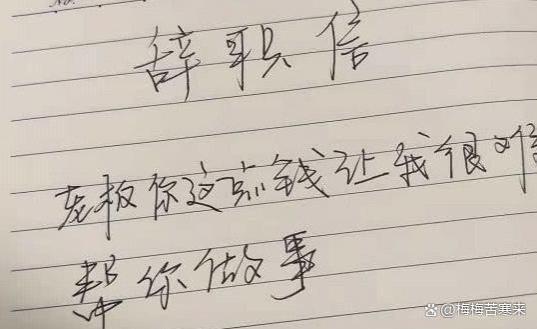 辞职信
老板你这点钱让我很难
帮你做事
@梅梅苦寒来